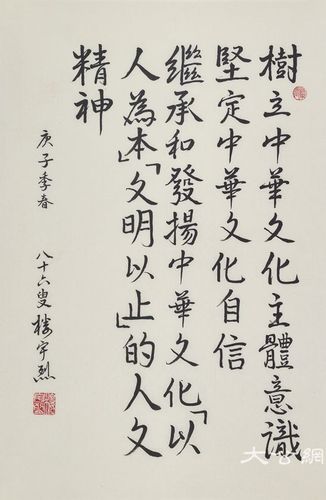 樹立中華文化主體意識
堅定中華文化自信
繼承和發揚中華文化「以
人為本」「文明以止」的人文
精神
庚子季春 八十六叟 樓宇烈
大公網